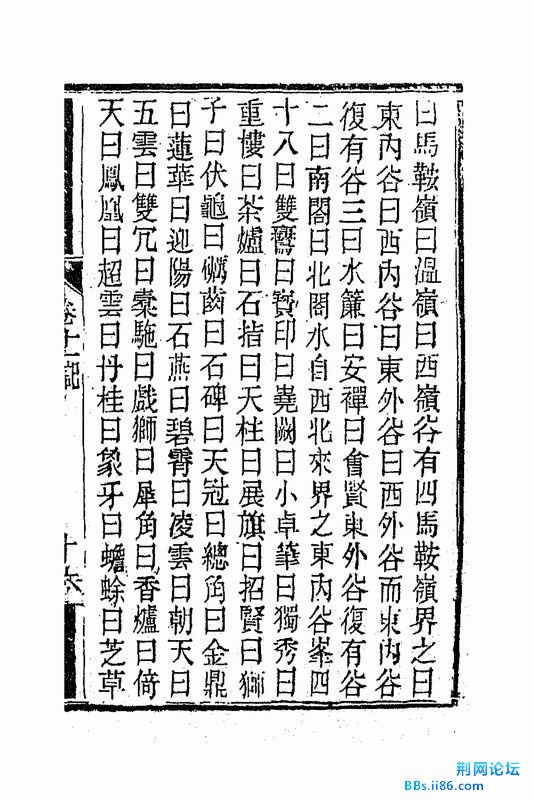 曰馬鞍嶺曰溫嶺曰西嶺谷有四馬鞍嶺界之曰
東内谷曰西内谷曰東外谷曰西外谷而東内谷
復有谷三曰水簾曰安禪曰會賢東外谷復有谷
二曰南閣曰北閣水自西北來界之東内谷峯四
十八曰雙鸞曰寶印曰堯闕曰小卓筆曰獨秀曰
重樓曰茶爐曰石指曰天柱曰展旗曰招賢曰獅
子曰伏龜曰礪齒曰石碑曰天冠曰總角曰金鼎
曰蓮華曰迎陽曰石燕曰碧霄曰凌雲曰朝天曰
五雲曰雙冗曰橐駞曰戲獅曰犀角曰香爐曰倚
天曰鳳凰曰超雲曰丹桂曰象牙曰蟾蜍曰芝草
卷十一記
十六
荆网论坛
BBs.ii86.com